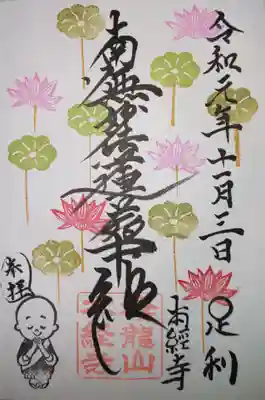 令和元年十一月三日
足利
本經寺
南無妙法蓮華経
龍山
奉拝